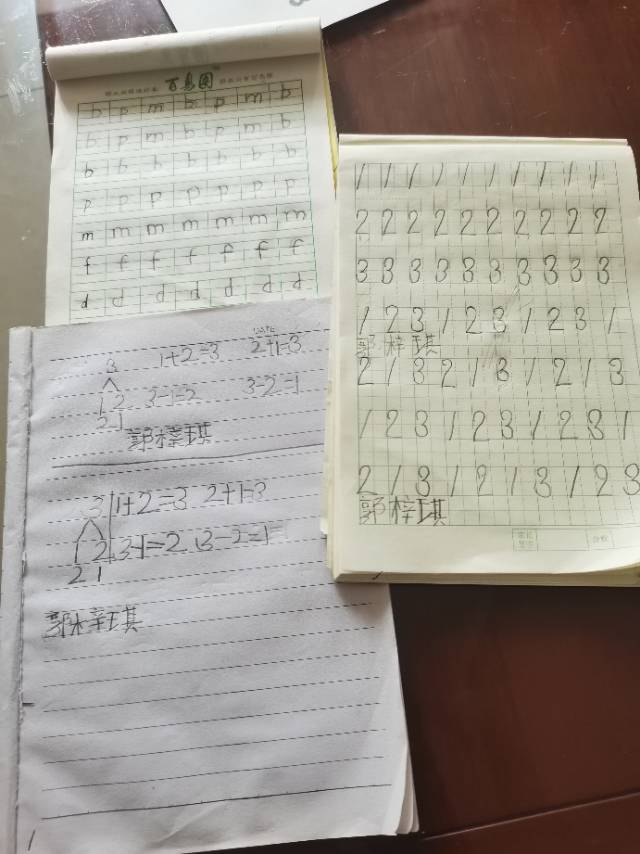 百鸟园
b p m b p m b
b p m b p m b
b b b b b b b
p p p p p p p
m m m m m m m
f f f f f f f
d d d d d d d
1 1 1 1 1 1 1 1 1 1
2 2 2 2 2 2 2 2 2 2
3 3 3 3 3 3 3 3 3 3
1 2 3 1 2 3 1 2 3 1
郭梓琪
2 1 3 2 1 3 1 2 1 3
1 2 3 1 2 3 1 2 3 1
2 1 3 1 2 1 3 1 2 3
郭梓琪
DATE
3 1+2=3 2+1=3
1 2 3-1=2 3-2=1
2 1
郭梓琪
3 1+2=3 2+1=3
1 2 3-1=2 3-2=1
2 1
郭梓琪